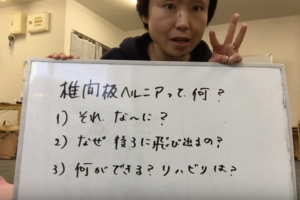 椎間板ヘルニアって、何？
1) それ な〜に？
2) なぜ 後ろに飛び出るの？
3) 何ができる？リハビリは？